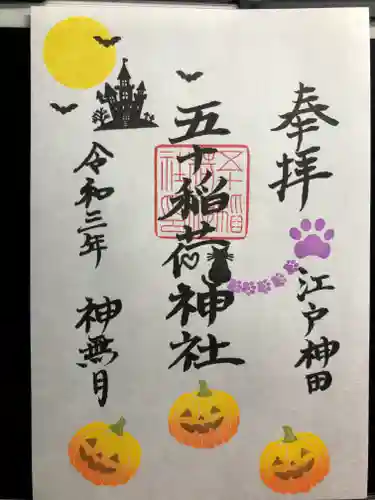 奉拝
江戸神田
五十稲荷神社
令和三年
神無月